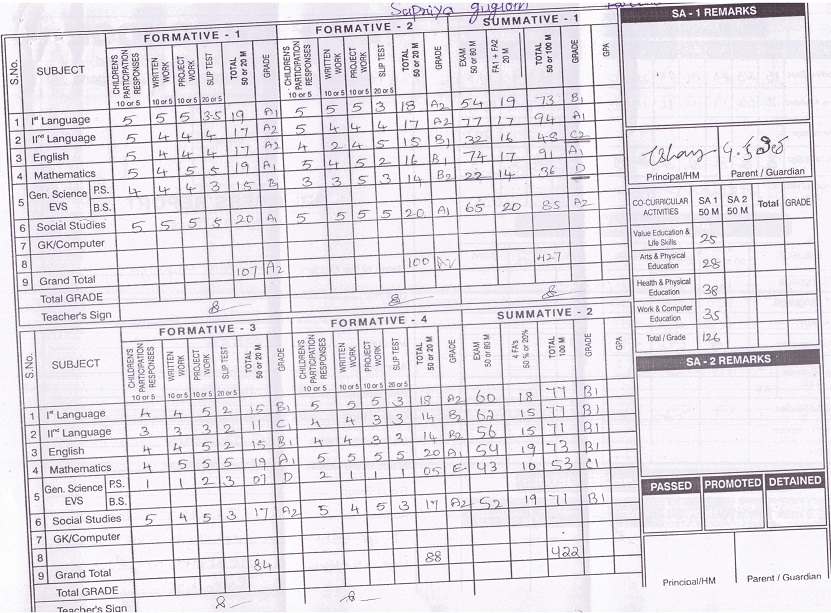 FORMATIVE - 1 FORMATIVE - 2 SUMMATIVE - 1
S.No. SUBJECT CHILDREN'S PARTICIPATION RESPONSES WRITTEN WORK PROJECT WORK SLIP TEST TOTAL 50 or 20 M GRADE CHILDREN'S PARTICIPATION RESPONSES WRITTEN WORK PROJECT WORK SLIP TEST TOTAL 50 or 20 M GRADE EXAM 50 or 80 M FA1 + FA2 20 M TOTAL 50 or 100 M GRADE GPA
10 or 5 10 or 5 10 or 5 20 or 5 10 or 5 10 or 5 10 or 5 20 or 5
1 Ist Language 5 5 5 3.5 19 A1 5 5 5 3 18 A2 54 19 73 B1
2 IInd Language 5 4 4 4 17 A2 5 4 4 4 17 A2 77 17 94 A1
3 English 5 4 4 4 17 A2 4 2 4 5 15 B1 32 16 48 C2
4 Mathematics 5 4 5 5 19 A1 5 4 5 2 16 B1 74 17 91 A1
5 Gen. Science EVS P.S. 4 4 4 3 15 B1 3 3 5 3 14 B2 22 14 36 D
B.S.
6 Social Studies 5 5 5 5 20 A1 5 5 5 5 20 A1 65 20 85 A2
7 GK/Computer
8
9 Grand Total 107 A2 100 A2 427
Total GRADE
Teacher's Sign
FORMATIVE - 3 FORMATIVE - 4 SUMMATIVE - 2
S.No. SUBJECT CHILDREN'S PARTICIPATION RESPONSES WRITTEN WORK PROJECT WORK SLIP TEST TOTAL 50 or 20 M GRADE CHILDREN'S PARTICIPATION RESPONSES WRITTEN WORK PROJECT WORK SLIP TEST TOTAL 50 or 20 M GRADE EXAM 50 or 80 M 4 FA's 50 % or 20% TOTAL 100 M GRADE GPA
10 or 5 10 or 5 10 or 5 20 or 5 10 or 5 10 or 5 10 or 5 20 or 5
1 Ist Language 4 4 5 2 15 B1 5 5 5 3 18 A2 60 18 77 B1
2 IInd Language 3 3 3 2 11 C1 4 4 3 3 14 B2 62 15 77 B1
3 English 4 4 5 2 15 B1 4 4 3 3 14 B2 56 15 71 B1
4 Mathematics 4 5 5 5 19 A1 5 5 5 5 20 A1 54 19 73 B1
5 Gen. Science EVS P.S. 1 1 2 3 07 D 2 1 1 1 05 E 43 10 53 C1
B.S.
6 Social Studies 5 4 5 3 17 A2 5 4 5 3 17 A2 52 19 71 B1
7 GK/Computer
8
9 Grand Total 84 88 422
Total GRADE
Teacher's Sign
SA - 1 REMARKS
Principal/HM Parent / Guardian
CO-CURRICULAR ACTIVITIES SA 1 50 M SA 2 50 M Total GRADE
Value Education & Life Skills 25
Arts & Physical Education 28
Health & Physical Education 38
Work & Computer Education 35
Total / Grade 126
SA - 2 REMARKS
PASSED PROMOTED DETAINED
Principal/HM Parent / Guardian